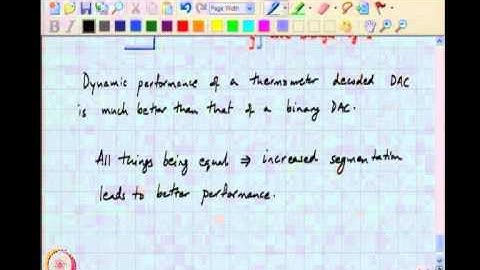 Page Width
B I
Dynamic performance of a thermometer decoded DAC
is much better than that of a binary DAC.
All things being equal ⇒ increased segmentation
leads to better performance.